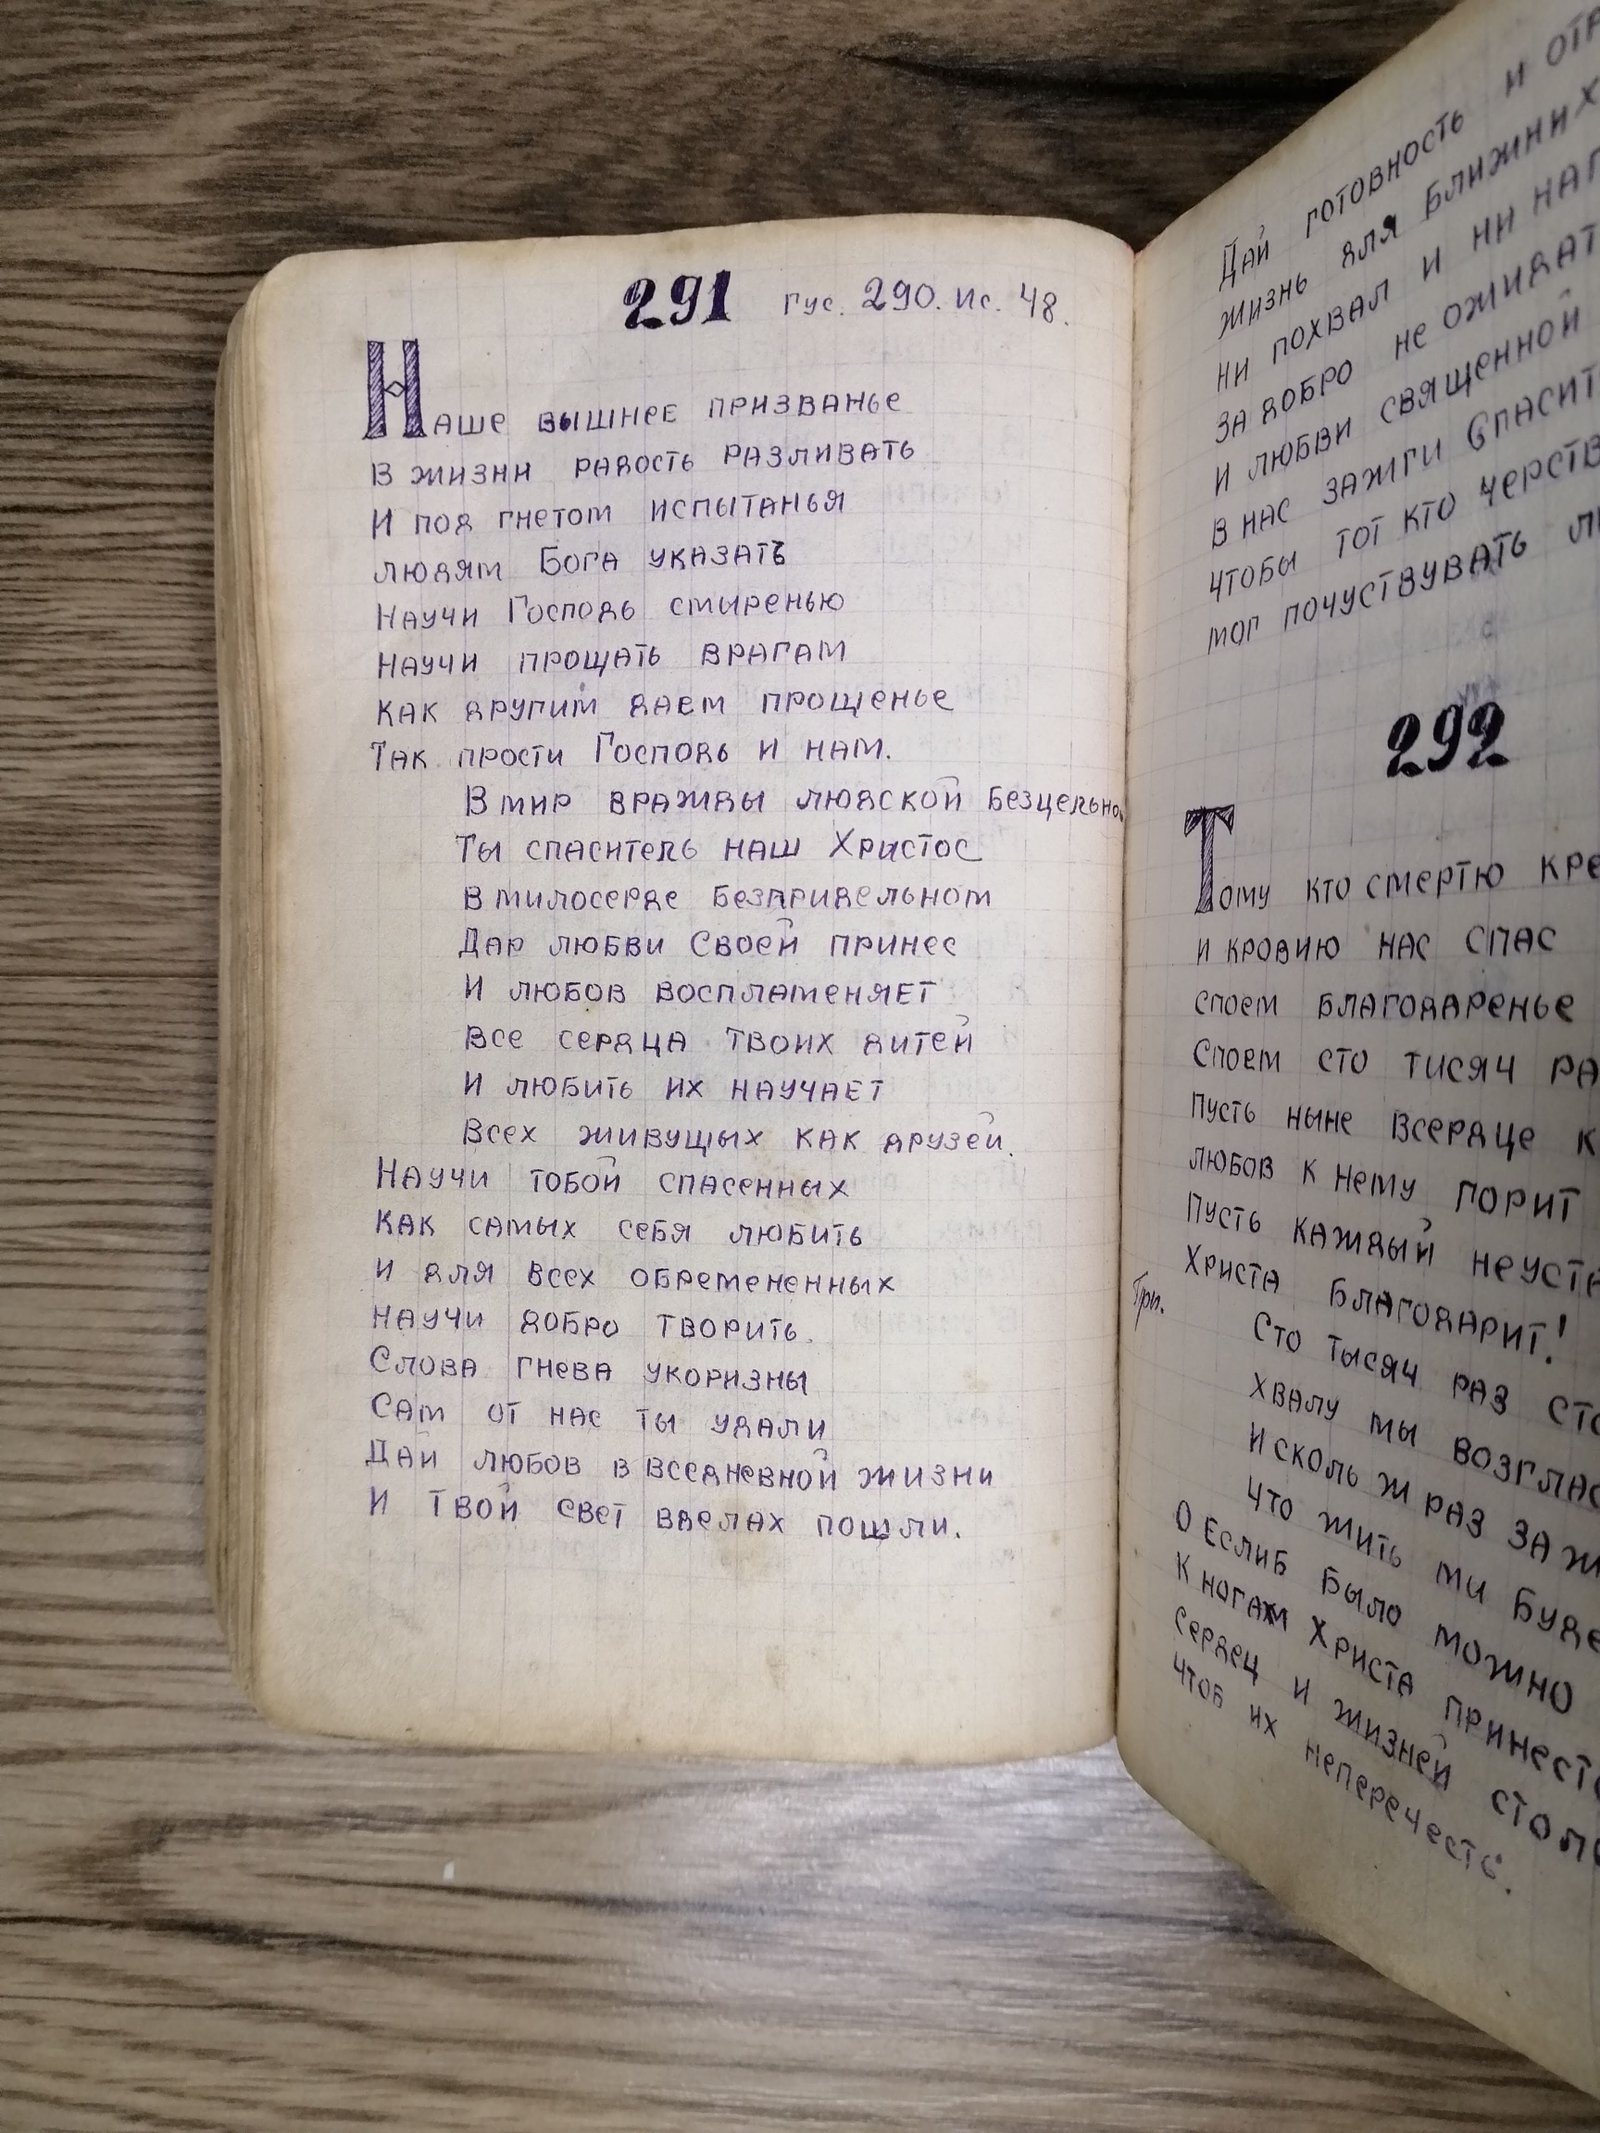 291 Гус. 290. Ис. 48.
Наше вышнее призванье
В жизни радость разливать
И под гнетом испытанья
людям Бога указать
Научи Господь смыренью
научи прощать врагам
как другим даем прощенье
Так прости Господь и нам.
В мир вражды людской безцельно
Ты спаситель наш Христос
в милосерде безпридельном
Дар любви Своей принес
И любов воспламеняет
все сердца твоих дитей
и любить их научает
Всех живущых как друзей.
Научи тобой спасенных
как самых себя любить
и для всех обремененных
научи добро творить.
Слова гнева укоризны
Сам от нас ты удали
Дай любов в вседневной жизни
И твой свет вделах пошли.
Дай готовность и отр
жизнь для ближних
ни похвал и ни наг
за добро не ожидат
и любви священной
в нас зажги Спасит
чтобы тот кто черств
мог почуствувать л
292
Тому кто смертю кре
и кровию нас спас
споем благодаренье
Споем сто тисяч ра
Пусть ныне всердце к
любов к нему горит
Пусть каждый неуста
Христа благодарит!
При. Сто тысяч раз сто
хвалу мы возглас
И сколь ж раз за ж
что жить ми буде
О Еслиб было можно
К ногам Христа принест
Сердец и жизней стол
чтоб их неперечесть.